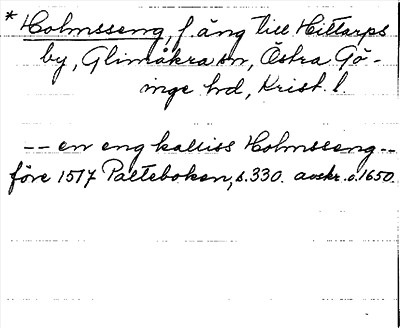 * Holmsseng, f. äng till Hittarps
by, Glimåkra sn, Östra Gö-
inge hd, Krist. l
-- en eng kalliss Holmsseng --
före 1517 Palteboken, s. 330. avskr. o. 1650.